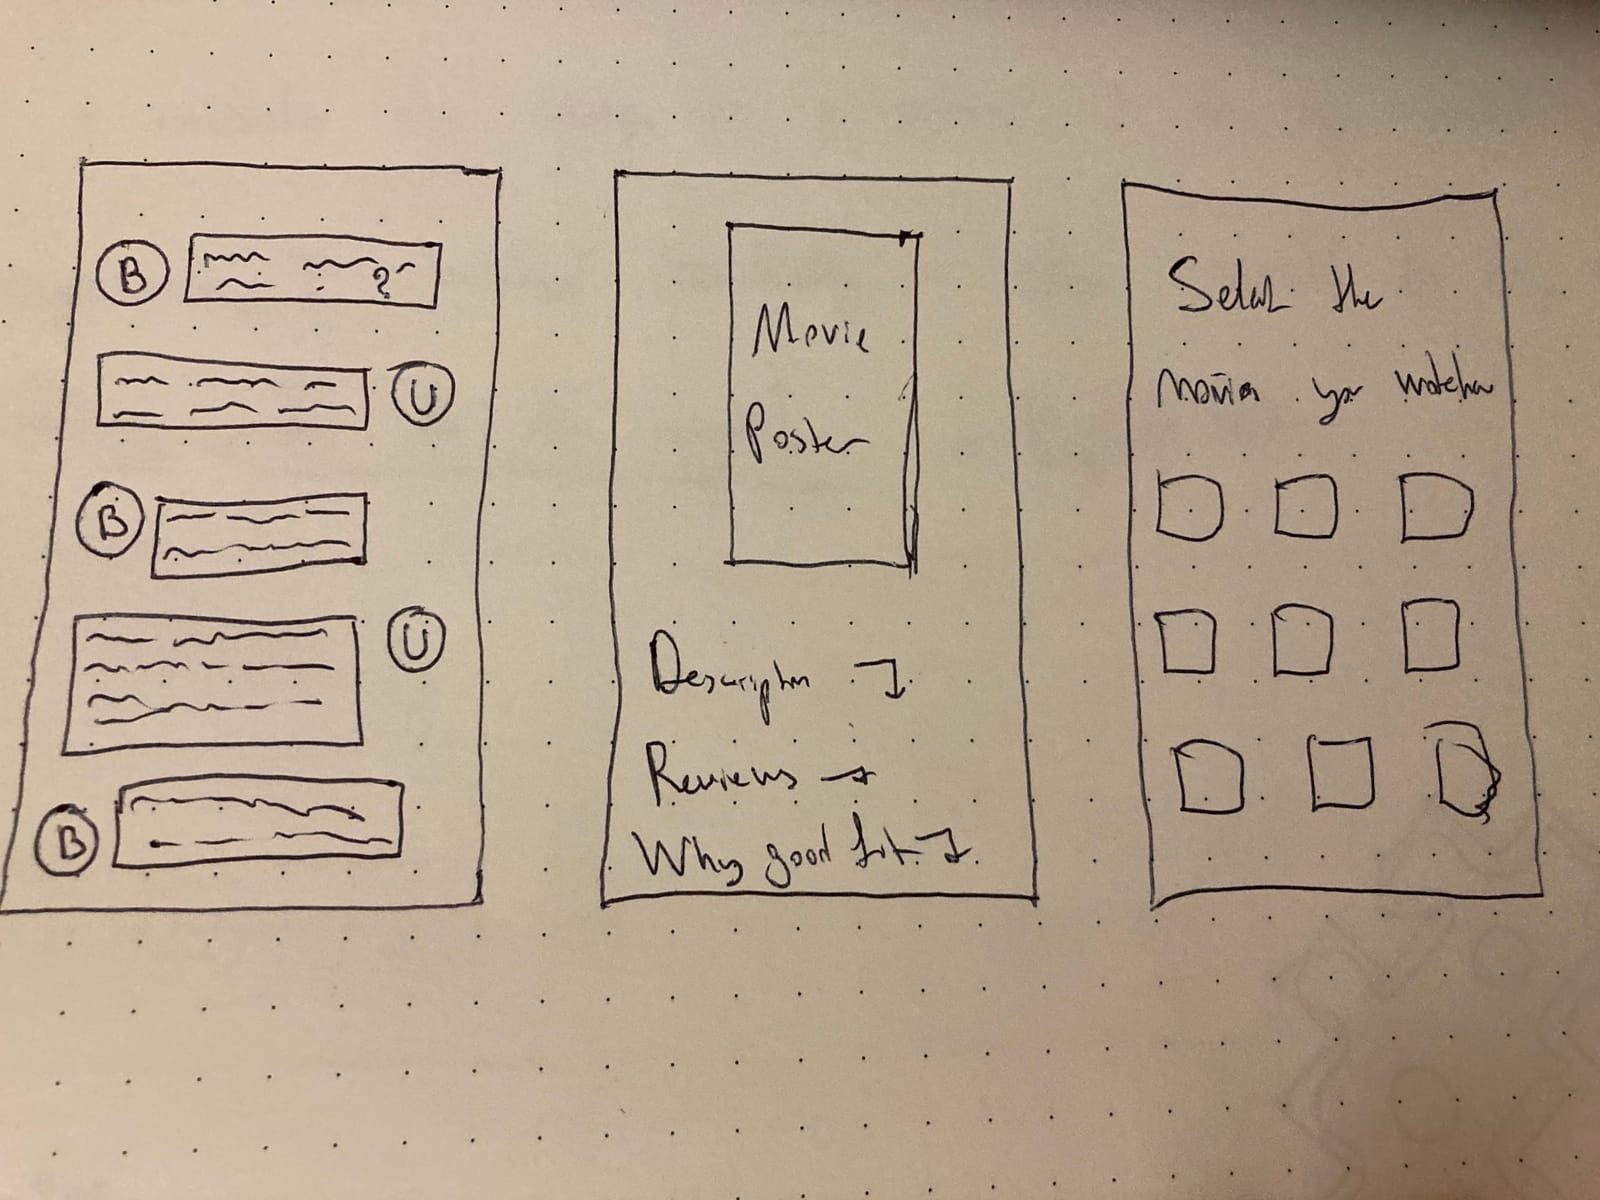 B
?
U
B
U
B
Movie
Poster
Description
Reviews
Why good fit
Select the
Movies you